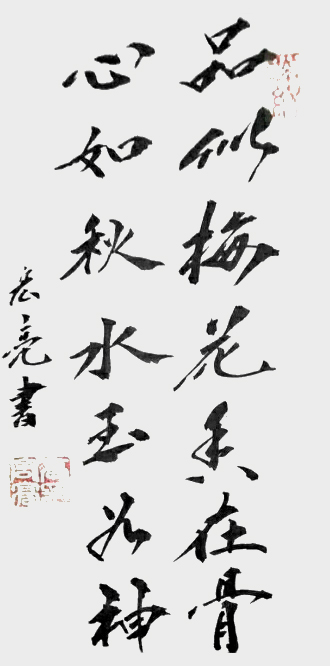 品似梅花香在骨
心如秋水玉为神
亮書